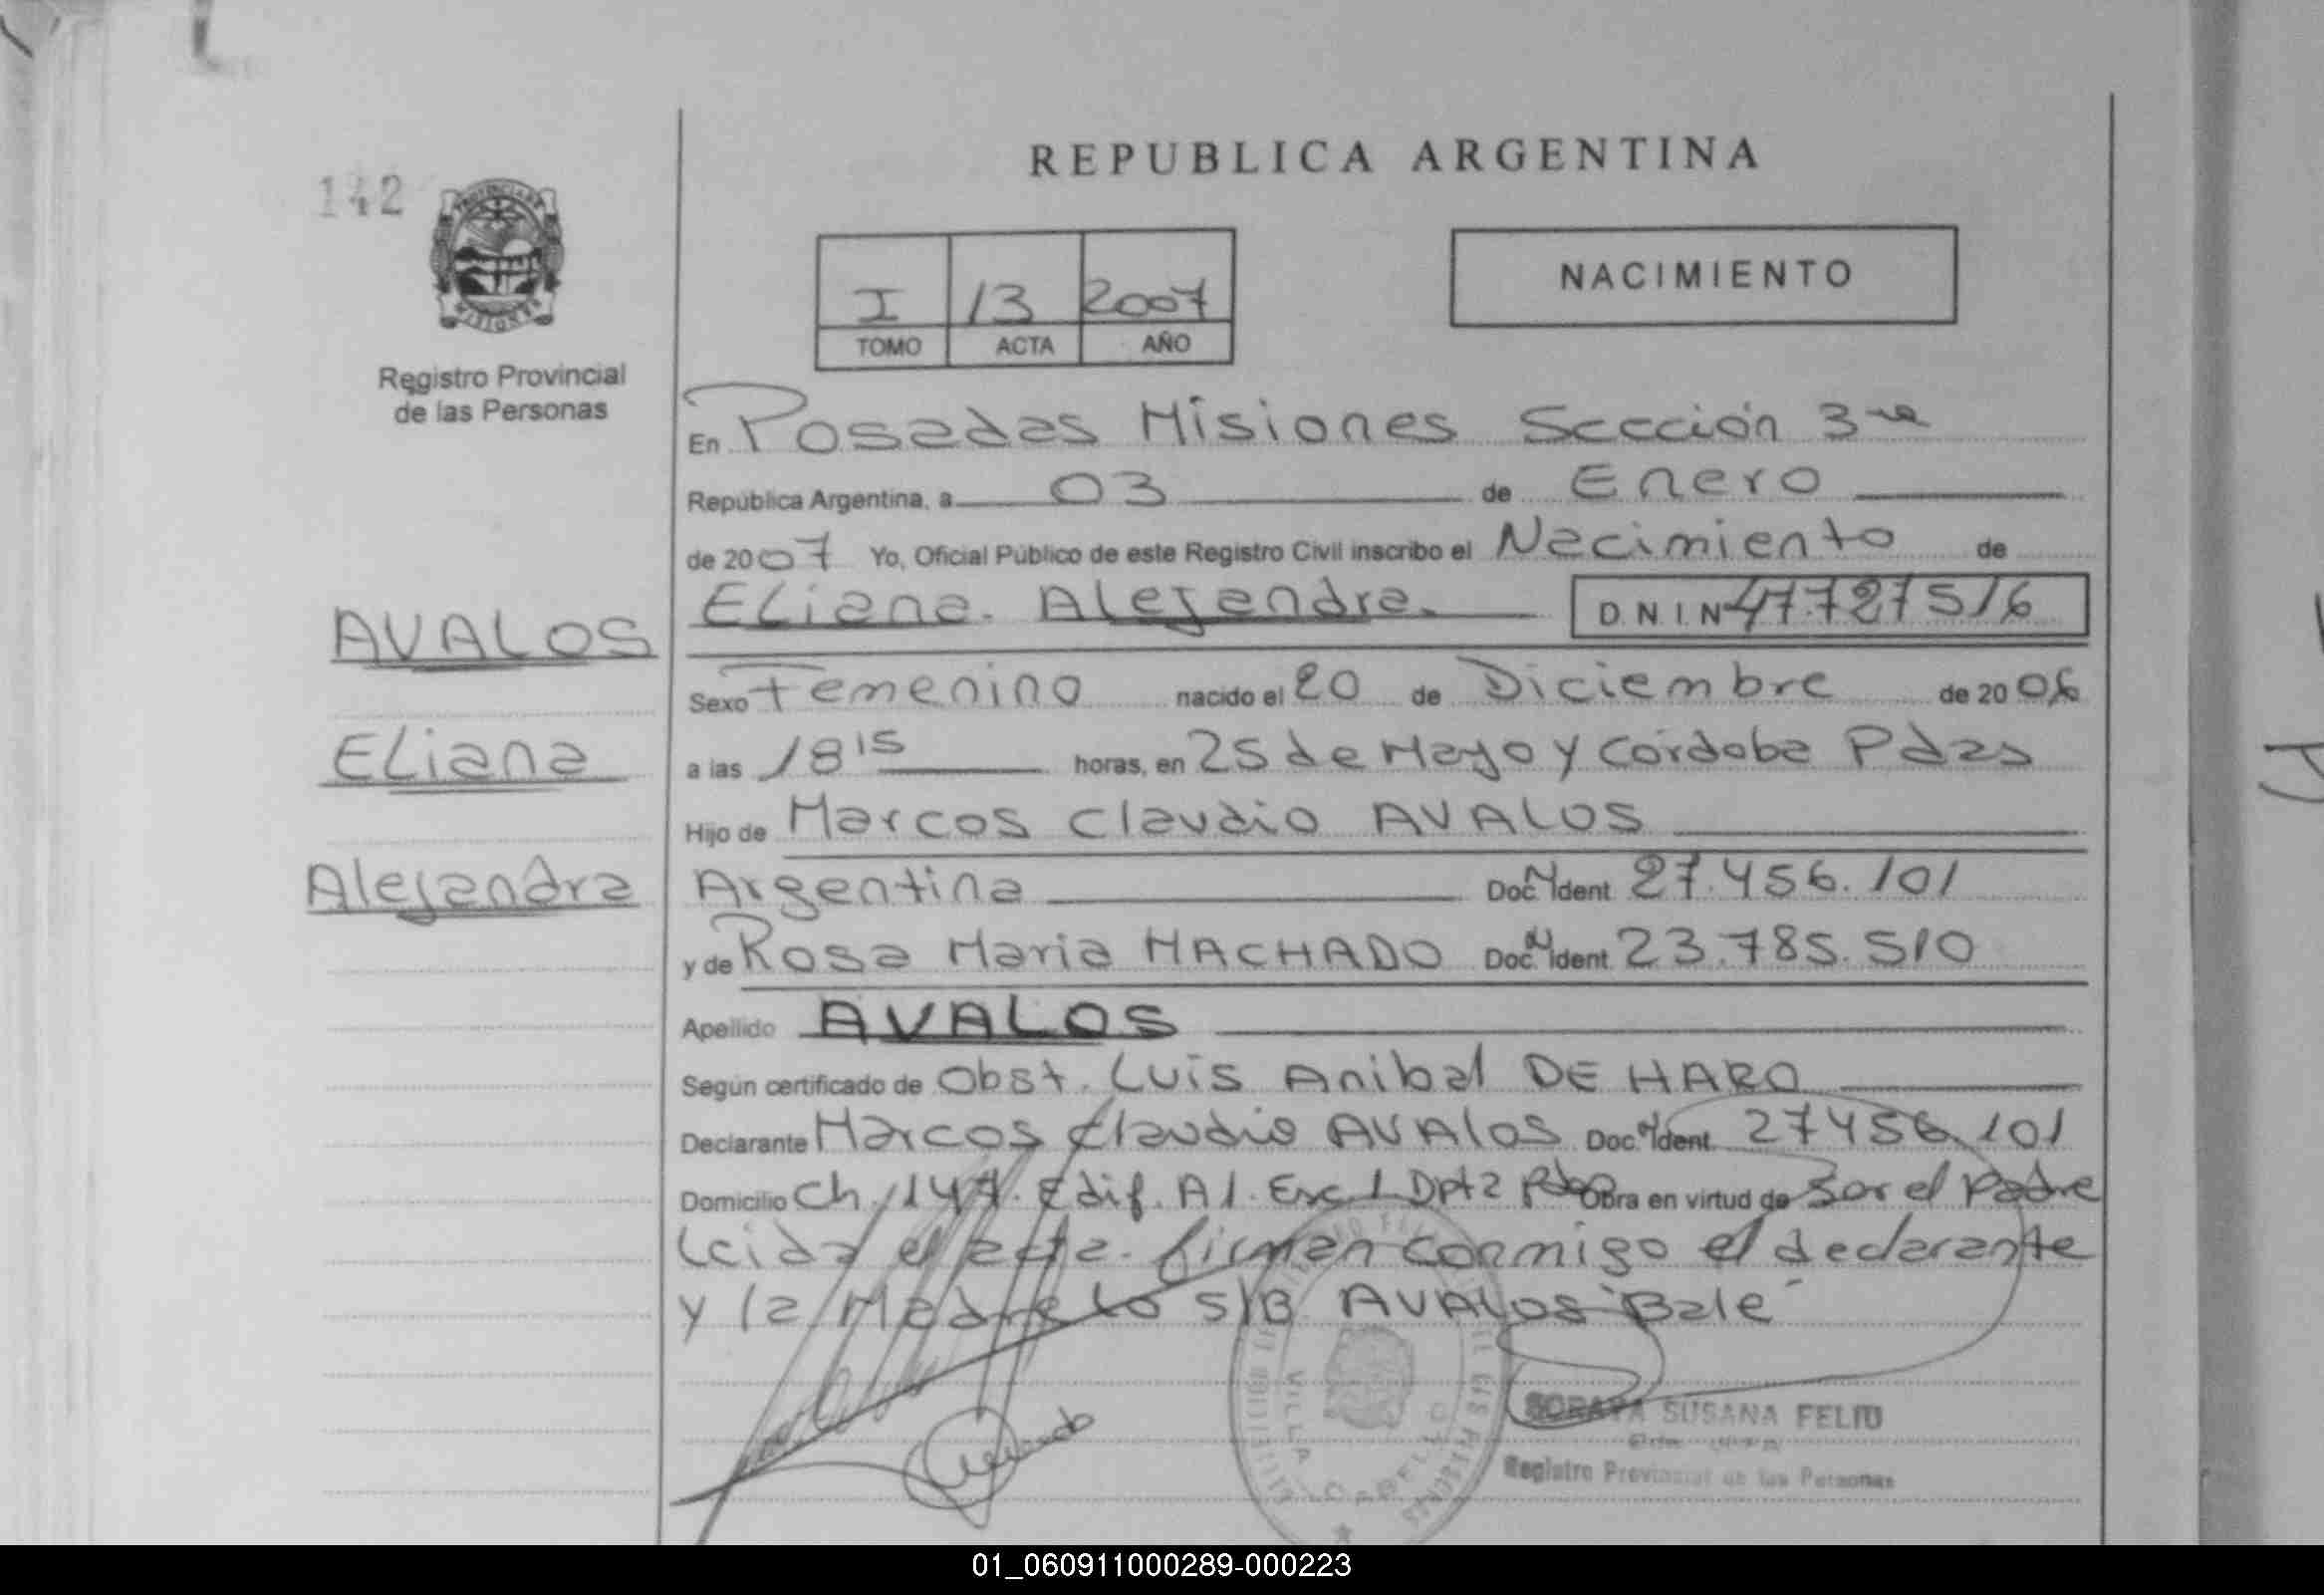 REPUBLICA ARGENTINA
142
I 13 2007
TOMO ACTA AÑO
NACIMIENTO
Registro Provincial
de las Personas
En Posadas Misiones Sección 3ra
República Argentina, a 03 de Enero
de 2007 Yo, Oficial Público de este Registro Civil inscribo el Nacimiento de
Eliana Alejandra D N I N 47.727516
AVALOS
Sexo Femenino nacido el 20 de Diciembre de 2006
Eliana
a las 18 15 horas, en 25 de Mayo y Córdoba Pdas
Hijo de Marcos Claudio AVALOS
Alejandra
Argentina Doc Ident 27.456.101
y de Rosa Maria MACHADO Doc Ident 23.785.510
Apellido AVALOS
Según certificado de Obst. Luis Anibal DE HARO
Declarante Marcos Claudio AVALOS Doc Ident 27456.101
Domicilio Ch. 147. Edif. A1. Esc 1 Dpt 2 Obra en virtud de Ser el Padre
Leida el acta. firman conmigo el declarante
y la Madre lo s/B AVALOS "Vale"
VILLA CABELLO
SORAYA SUSANA FELIU
Registro Provincial de las Personas
01_060911000289-000223